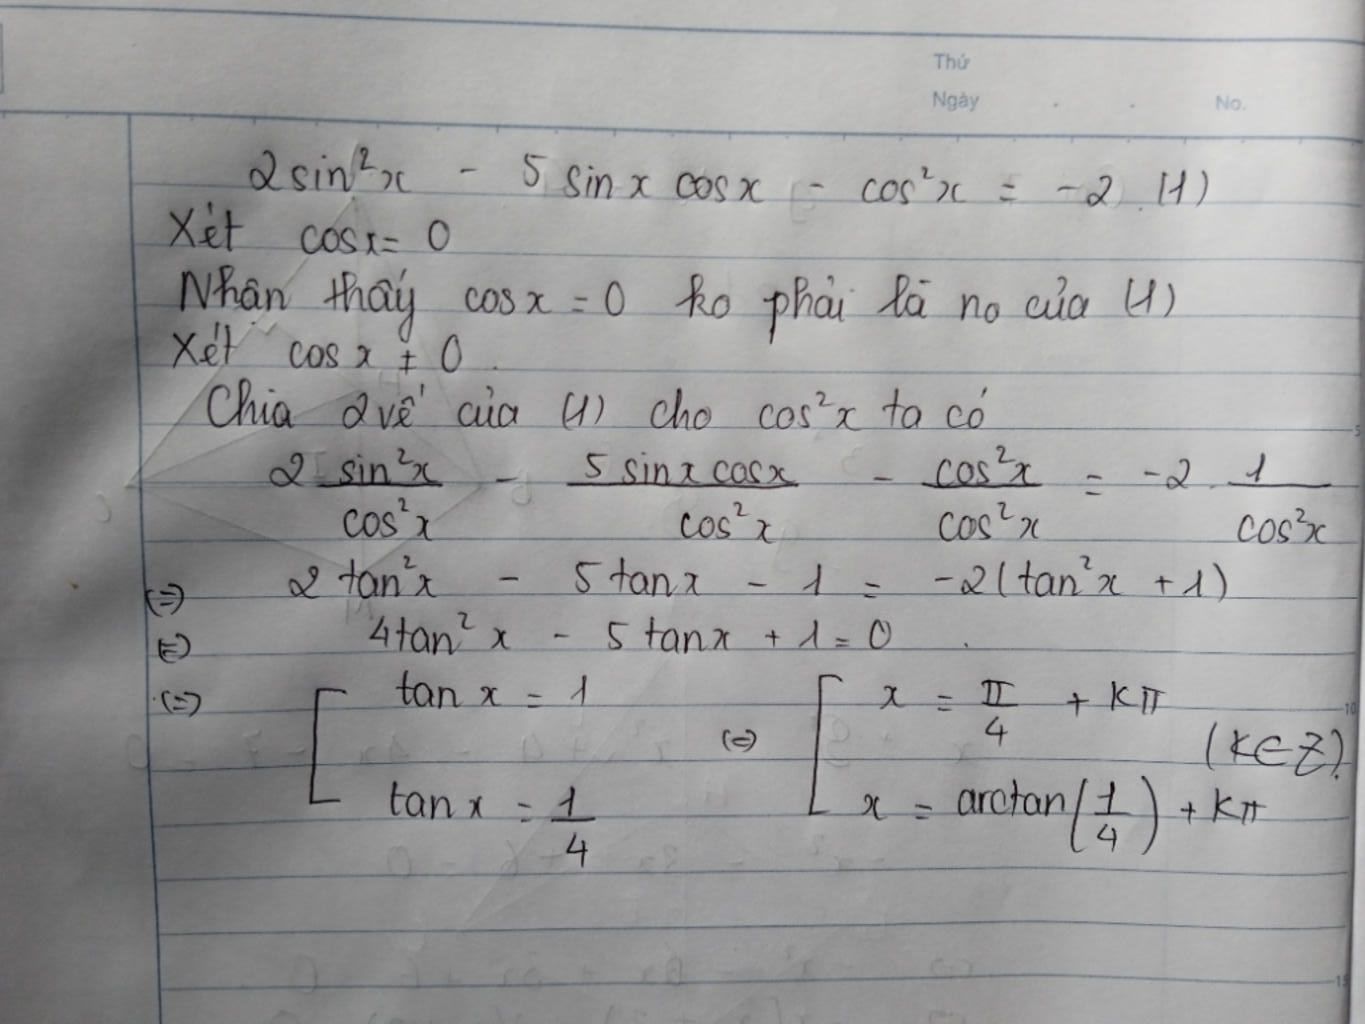 Thứ
Ngày . . No.
2sin²x - 5 sin x cosx - cos²x = -2 (1)
Xét cosx = 0
Nhận thấy cos x = 0 ko phải là no của (1)
Xét cos x ≠ 0.
Chia 2 vế của (1) cho cos²x ta có
2 sin²x/cos²x - 5 sinx cosx/cos²x - cos²x/cos²x = -2 . 1/cos²x
(=) 2 tan²x - 5 tanx - 1 = -2(tan²x + 1)
(=) 4tan²x - 5 tanx + 1 = 0 .
(=) [ tan x = 1 (=) [ x = π/4 + kπ
(k∈Z).
tan x = 1/4 x = arctan(1/4) + kπ
5
10
15